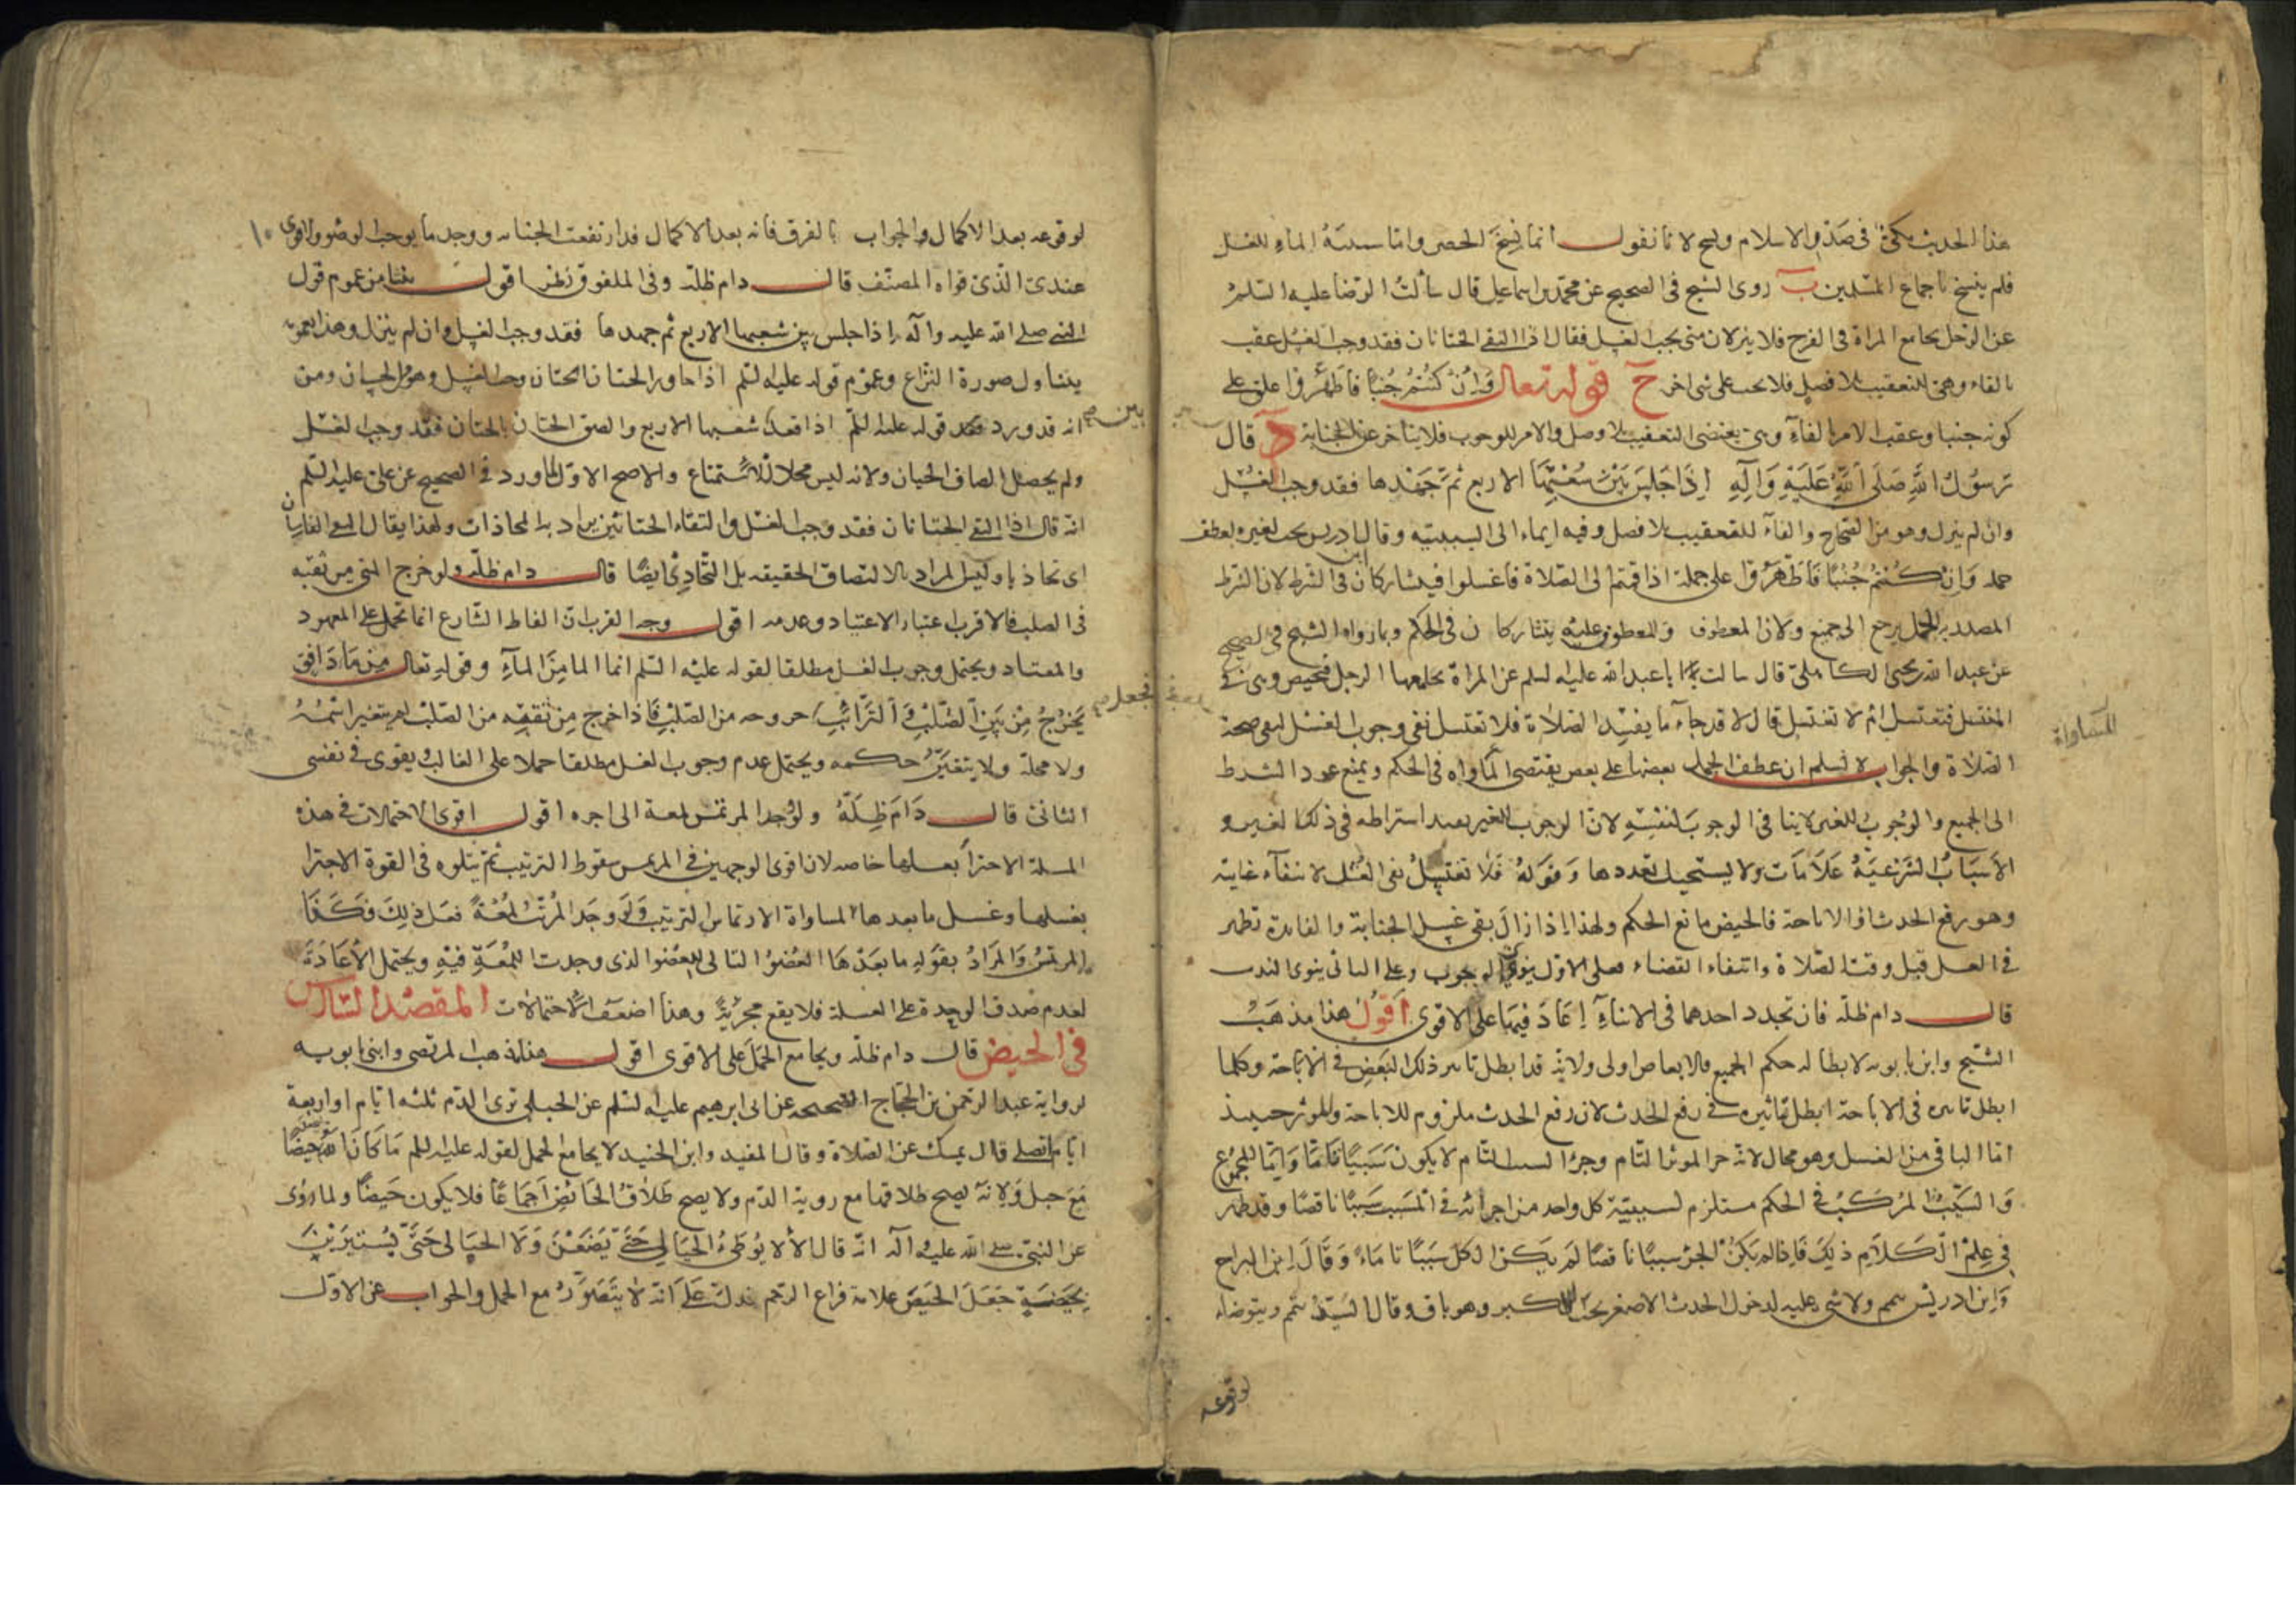 هذا الحديث كان في صدر الاسلام ونسخ لانا نقول انما نسخ الحصر واما سببية الماء للغسل
فلم ينسخ باجماع المسلمين ب روى الشيخ في الصحيح عن محمد بن اسماعيل قال سألت الرضا عليه السلم
عن الرجل يجامع المراة في الفرج فلا ينزلان متى يجب الغسل فقال اذا التقى الختانان فقد وجب الغسل عقب
بالفاء وهي للتعقيب بلا فصل فلا يجب على شي اخر ج قوله تعالى وَاِنْ كُنْتُمْ جُنُبًا فَاطَّهَّرُوا علق على
كونه جنبا وعقب الامر بالفاء وهي يقتضى التعقيب بلا فصل والامر للوجوب فلا يتاخر عن الجنابة د قال
رَسُولُ اللهِ صَلَّى اللهُ عَلَيْهِ وَآلِهِ اِذَا جَلَسَ بَيْنَ شُعَبِهَا الاربع ثُمَّ جَهَدها فقد وجب الغُسْل
وان لم ينزل وهو من الصحاح والفاء للتعقيب بلا فصل وفيه ايماء الى السببية وقال ابن ادريس يجب لغيره لعطف
جملة وَاِنْ كُنْتُمْ جُنُبًا فَاطَّهَّرُوا على جملة اذا قمتم الى الصلاة فاغسلوا فيشاركان في الشرط لان الشرط
المصدر به الجمل يرجع الى الجميع ولان المعطوف والمعطوف عليه يتشاركان في الحكم وبما رواه الشيخ في الصحيح
عن عبد الله بن يحيى الكاهلي قال سالت ابا عبد الله عليه السلم عن المراة يجامعها الرجل فتحيض وهي في
المغتسل فتغتسل ام لا تغتسل قال لا قد جاء ما يفسد الصلاة فلا تغتسل نفى وجوب الغسل لنفي صحة
الصلاة والجواب لا نسلم ان عطف الجمل بعضها على بعض يقتضى المساواة في الحكم ويمنع عود الشرط
المساواة
الى الجميع والوجوب للغير لا ينافي الوجوب لنفسه لان الوجوب للغير بعد اشتراطه في ذلك الغير و
الاسباب الشرعية علامات ولا يستحيل تعددها وقوله فلا تغتسل نفى الغسل لانتفاء غايته
وهو رفع الحدث او الاباحة فالحيض مانع الحكم ولهذا اذا زال بقى غسل الجنابة والفايدة تظهر
في الغسل قبل وقت الصلاة وانتفاء القضاء فعلى الاول ينوي الوجوب وعلى الثاني ينوى الندب
قال دام ظله فان تجدد احدهما في الاثناء اعاد فيهما على الاقوى اقول هذا مذهب
الشيخ وابن بابويه لابطاله حكم الجميع فالابعاض اولى ولانه قد ابطل تاثير ذلك البعض في الاباحة وكلما
ابطل تاثيره في الاباحة ابطل تاثيره في رفع الحدث لان رفع الحدث ملزوم للاباحة والموثر حينئذ
اما الباقي من الغسل وهو محال لانه جزء الموثر التام وجزء السبب التام لا يكون سببيا تاما واما المجموع
والسبب المركب في الحكم مستلزم لسببية كل واحد من اجزائه في المسبب سببا ناقصا وقد ظهر
في علم الكلام ذلك فاذا لم يكن الجزء سببا ناقصا لم يكن الكل سببا تاما وقال ابن البراج
وابن ادريس يتمم ولا شي عليه لدخول الحدث الاصغر تحت الاكبر وهو باق وقال السيد يتمم ويتوضا
لوقوعه
لوقوعه بعد الاكمال والجواب بالفرق فانه بعد الاكمال قد ارتفعت الجنابة ووجد ما يوجب الوضوء والاقوى ١٠
عندي الذي قواه المصنف قال دام ظله وفي الملفوف نظر اقول ينشا من عموم قول
النبي صلى الله عليه وآله اذا جلس بين شعبها الاربع ثم جهدها فقد وجب الغسل وان لم ينزل وهذا بعمومه
يتناول صورة النزاع وعموم قوله عليه السلم اذا جاوز الختان الختان وجب الغسل ومن
انه قد ورد قوله عليه السلم اذا قعد بين شعبها الاربع والصق الختان بالختان فقد وجب الغسل
ولم يحصل الصاق الختان ولانه ليس محلا للاستمتاع والاصح الاول لما ورد في الصحيح عن علي عليه السلم
انه قال اذا التقى الختانان فقد وجب الغسل والتقاء الختانين يراد به المحاذات ولهذا يقال التقى الفارسان
اى تحاذيا وليس المراد بالالتصاق الحقيقه بل التحاذي ايضا قال دام ظله ولو خرج المني من ثقبه
في الصلب فالاقرب اعتبار الاعتياد وعدمه اقول وجه القرب ان الفاظ الشارع انما تحمل على المعهود
والمعتاد ويحتمل وجوب الغسل مطلقا لقوله عليه السلم انما الماء من الماء وقوله تعالى مِنْ مَاءٍ دَافِقٍ
يَخْرُجُ مِنْ بَيْنِ الصُّلْبِ وَالتَّرَائِبِ خروجه من الصلب فاذا خرج من ثقبه من الصلب لم يتغير اسمه
ولا محله ولا يتغير حكمه ويحتمل عدم وجوب الغسل مطلقا حملا على الغالب ويقوى في نفسى
الثاني قال دام ظله ولو وجد المرتمس لمعة الى اخره اقول اقوى الاحتمالات في هذه
المسلة الاجتزاء بغسلها خاصة لان اقوى الوجهين في المرتمس سقوط الترتيب ثم يتلوه في القوة الاجتزاء
بغسلها وغسل ما بعدها لمساواة الارتماس الترتيب ولو وجد المرتب لمعة فعل ذلك فكذا
المرتمس والمراد بقوله ما بعدها العضو التالي للعضو الذي وجدت اللمعة فيه ويحتمل الاعادة
لعدم صدق الوحدة على الغسلة فلا يقع مجزية وهذا اضعف الاحتمالات المقصد السادس
في الحيض قال دام ظله ويجامع الحمل على الاقوى اقول هذا مذهب المرتضى وابني بابويه
لرواية عبد الرحمن بن الحجاج الصحيحة عن ابي ابرهيم عليه السلم عن الحبلى ترى الدم ثلثه ايام او اربعة
ايام تصلى قال تمسك عن الصلاة وقال المفيد وابن الجنيد لا يجامع الحمل لقوله عليه السلم ما كان الله ليجعل حيضا
مع حبل ولانه يصح طلاقها مع روية الدم ولا يصح طلاق الحائض اجماعا فلا يكون حيضا ولما روى
عن النبي صلى الله عليه وآله انه قال الا لا يوطئ الحبالى حتى يضعن ولا الحيالى حتى يستبرين
بحيضة جعل الحيض علامة فراغ الرحم فدل على انه لا يتصور مع الحمل والجواب عن الاول